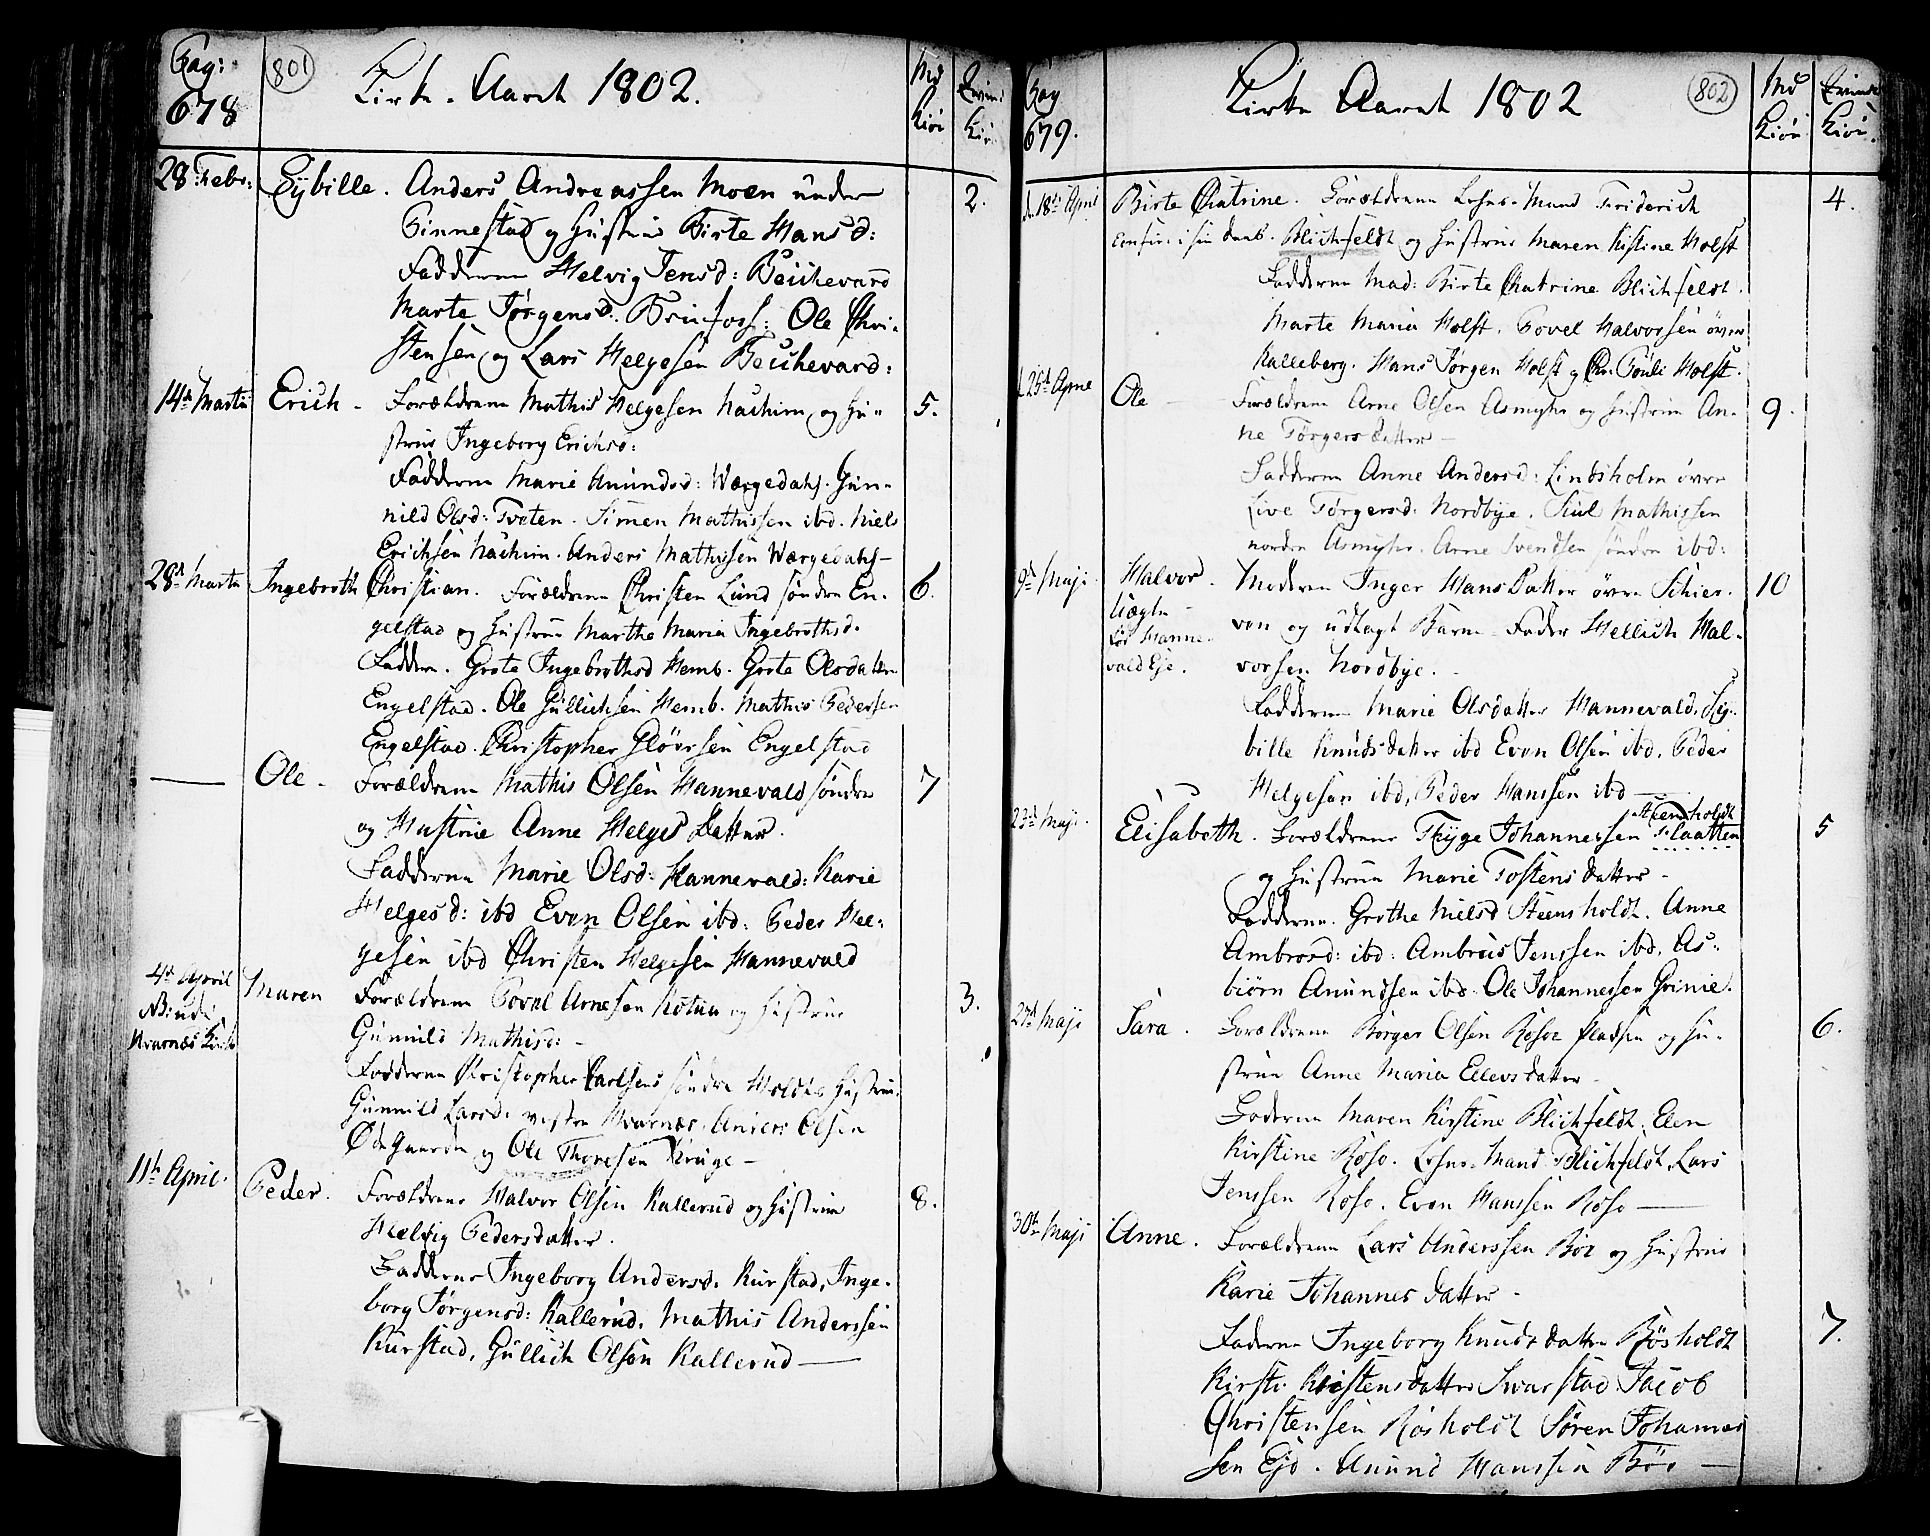 Pag: 678
801
Kirke-Aaret 1802.
Md Kiøn
Qvinde Kiøn
28 Febr:
Sybille. Anders Andreassen Moen under
Pinnestad og Hustrue Birte Hansd:
Fadderne Helvig Jensd:
Marte Jørgensd: Ole Chri-
stensen og Lars Helgesen
2.
14de Martii
Erich - Forældrene Mathis Helgesen Hachim og Hu-
strue Ingeborg Erichsd:
Fadderne Marie Amundsd: Gun-
nild Olsd: Tveten. Simen Mathissen ibd. Niels
Erichsen Hachim. Anders Mathissen
5.
28de Martii
Ingebroth Christian. Forældrene Christen Lund søndre En-
gelstad og Hustrue Marthe Maria Ingebrothsd.
Faddere. Grete Ingebrothsd Hemb. Grete Olsdatter
Engelstad. Ole Gullichsen Hemb. Mathis Pedersen
Engelstad. Christopher Engelstad
6.
Ole - Forældrene Mathis Olsen Hannevald søndre
og Hustrue Anne Helges Datter.
Fadderne Marie Olsd: Hannevald: Karie
Helgesd: ibd Even Olsen ibd: Peder Hel-
gesen ibd Christen Helgesen Hannevald
7
4de April
Hvarnæs Kirke
Maren Forældrene Povel Arnesen og Hustrue
Gunnild Mathisd: -
Fadderne Christopher Carlsens søndre Holdts Hustrue.
Gunnild Larsd: vestre Hvarnæs. Anders Olsen
Ødegaarden og Ole Thoresen -
3.
11te April.
Peder. Forældrene Halvor Olsen Kallerud og Hustrue
Helvig Pedersdatter.
Fadderne Ingeborg Andersd. Kurstad, Inge-
borg Jørgensd: Kallerud. Mathis Anderssen
Kurstad, Gullich Olsen Kallerud
8.
Pag 679.
Kirke Aaret 1802
802
Md Kiøn
Qvinde Kiøn.
d. 18de April
Birte Catrine. Forældrene Lehns-Mand Friderich
Confir: i sin daab. Blichfeldt og Hustrue Maren Kistine Holst
Fadderne Mad: Birte Catrine Blichfeldt.
Marte Maria Holst. Povel Halvorsen øvre
Kalleberg. Hans Jørgen Holst og Holst.
4.
d 25de Aprie
Ole - Forældrene Arne Olsen Asmyhr og Hustrue An-
ne Tørgersdatter -
Fadderne Anne Andersd: Lindsholm øvre
Live Tørgersd: Nordbye. Juul Mathissen
nordre Asmyhr. Arne Svendsen søndre ibd:
9.
9de Maji.
Halvor. Moderen Inger Hans Datter øvre Schier-
Uægte - ven og udlagt Barne-Fader Hellich Hal-
for Hanne- vorsen Nordbye.
vald Eje. Fadderne Marie Olsdatter Hannevald, Sy-
bille Knudsdatter ibd Even Olsen ibd. Peder
Helgesen ibd, Peder Hanssen ibd
10
23de Maji.
Steensholdt
Elisabeth. Forældrene Thyge Johannessen Flaatten
og Hustrue Marie Tostensdatter -
Fadderne. Grethe Nielsd Steensholdt. Anne
Ambrosd: ibd: Ambros Jenssen ibd. As-
biørn Amundsen ibd. Ole Johannessen Grinie.
5
27de Maji
Sara. Forældrene Børger Olsen Røsoe Pladsen og Hu-
strue Anne Maria Ellevsdatter -
Fadderne Maren Kirstine Blichfeldt. Elen
Kirstine Røso. Lehns-Mand Blichfeldt, Lars
Jenssen Røso. Even Hanssen Røso
6.
30te Maji
Anne. Forældrene Lars Anderssen Bøe og Hustrue
Karie Johannesdatter -
Fadderne Ingeborg Knudsdatter Røsholdt
Kirsti Kristensdatter Svarstad Jacob
Christensen Røsholdt Søren Johannes
sen Eje. Amund Hanssen Bøe
7.